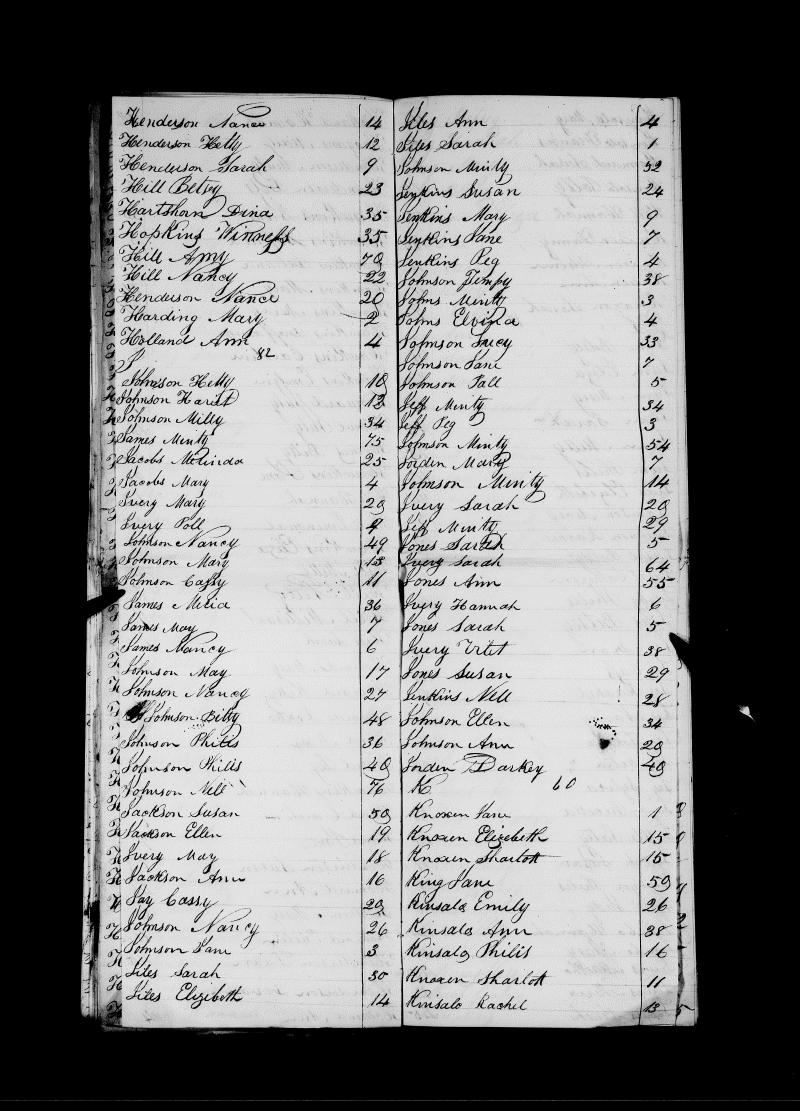 Henderson Nance 14
Henderson Hetty 12
Henderson Sarah 9
Hill Betsy 23
Hartshorn Dina 35
Hopkins 35
Hill Amy 70
Hill Nancy 22
Henderson Nance 20
Harding Mary 2
Holland Ann 4
82
J
Johnson Hetty 10
Johnson Hariet 12
Johnson Milly 34
James Minty 75
Jacobs Melinda 25
Jacobs Mary 4
Ivery Mary 20
Ivery Poll 9
Johnson Nancy 49
Johnson Mary 13
Johnson Cassy 11
James Meria 36
James May 7
James Nancy 6
Johnson May 17
Johnson Nancy 27
Johnson Bitty 48
Johnson Philis 36
Johnson Philis 40
Johnson Nell 76
Jackson Susan 50
Jackson Ellen 19
Ivery May 18
Jackson Ann 16
Jay Cassy 20
Johnson Nancy 26
Johnson Jane 3
Jiles Sarah 30
Jiles Elizibeth 14
Jiles Ann 4
Jiles Sarah 1
Johnson Minty 52
Jenkins Susan 24
Jenkins Mary 9
Jenkins Jane 7
Jenkins Peg 4
Johnson Tempy 38
Johns Minty 3
Johns Elvina 4
Johnson Lucy 33
Johnson Jane 7
Johnson Pall 5
Jeff Minty 34
Jeff Peg 3
Johnson Minty 54
Jorden Mary 7
Johnson Minty 14
Ivery Sarah 20
Jeff Minty 29
Jones Sarah 5
Ivery Sarah 64
Jones Ann 55
Ivery Hannah 6
Jones Sarah 5
Ivery 38
Jones Susan 29
Jenkins Nell 28
Johnson Ellen 34
Johnson Ann 20
Jorden Darkey 40
K 60
Knoxen Jane 1
Knoxen Elizebeth 15
Knoxen Sharlott 15
King Jane 50
Kinsalo Emily 26
Kinsalo Ann 38
Kinsalo Philis 16
Knoxen Sharlott 11
Kinsalo Rachel 13